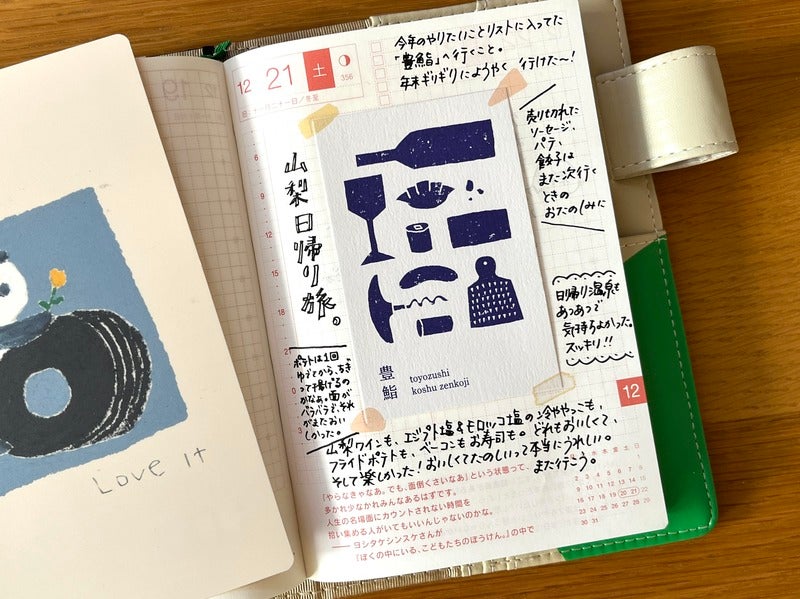 Love It
12 21 土
356
日 十一月二十一日/冬至
今年のやりたいことリストに入ってた
「豊鮨」へ行くこと。
年末ギリギリにようやく行けた〜!
売り切れた
ソーセージ、
パテ、
餃子は
また次行く
ときの
おたのしみに
山梨日帰り旅。
豊鮨
toyozushi
koshu zenkoji
日帰り温泉も
あつあつで
気持ちよかった。
スッキリ!!
ポテトは1回
ゆでてから、ちぎ
って揚げるの
かなぁ。面が
バラバラで、それ
がまたおい
しかった。
12
山梨ワインも、エジプト塩&モロッコ塩の冷ややっこも、
フライドポテトも、ベーコンもお寿司も。どれもおいしくて、
そして楽しかった!おいしくてたのしいって本当にうれしい。
また行こう。
「やらなきゃなあ。でも、面倒くさいなあ」という状態って、
多かれ少なかれみんなあるはずです。
人生の名場面にカウントされない時間を
拾い集める人がいてもいいんじゃないのかな。
── ヨシタケシンスケさんが
『ぼくの中にいる、こどもたちのぼうけん。』の中で
月 火 水 木 金 土 日
1
2 3 4 5 6 7 8
9 10 11 12 13 14 15
16 17 18 19 20 21 22
23 24 25 26 27 28 29
30 31